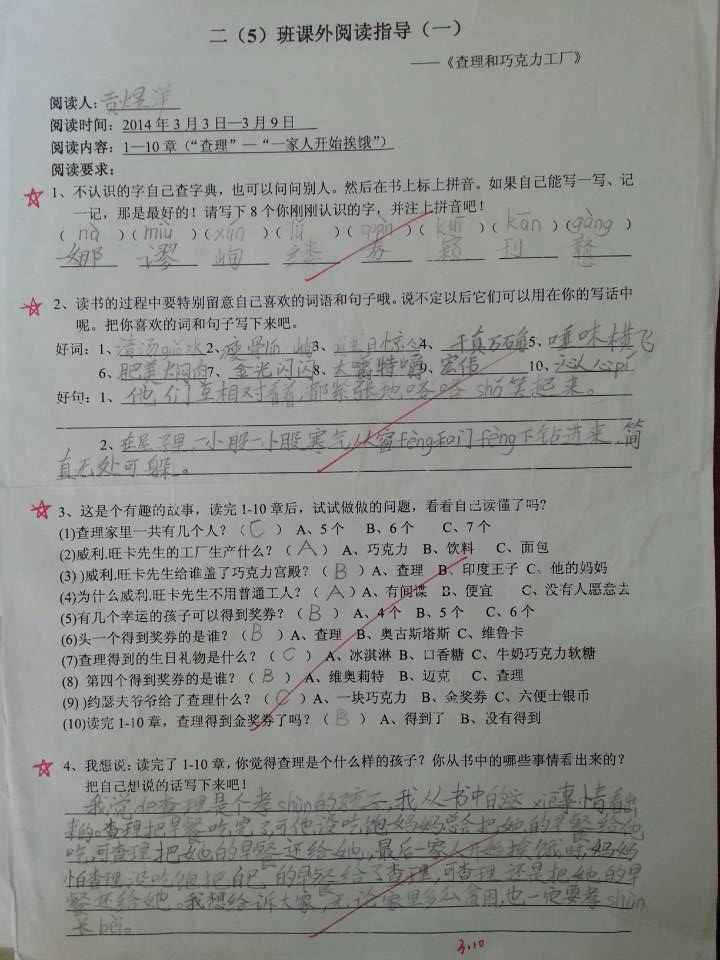 二（5）班课外阅读指导（一）
——《查理和巧克力工厂》
阅读人:黄煜洋
阅读时间: 2014年3月3日—3月9日
阅读内容: 1—10章（“查理”—“一家人开始挨饿”）
阅读要求:
1、不认识的字自己查字典，也可以问问别人。然后在书上标上拼音。如果自己能写一写、记
一记，那是最好的！请写下8个你刚刚认识的字，并注上拼音吧！
（nà）（miù）（xún）（lǚ）（quàn）（kuī）（kān）（gàng）
娜 谬 峋 缕 券 刊
2、读书的过程中要特别留意自己喜欢的词语和句子哦。说不定以后它们可以用在你的写话中
呢。把你喜欢的词和句子写下来吧。
好词：1、清汤寡水2、瘦骨嶙峋3、惊人4、千真万确5、唾味横飞
6、肥美焖肉7、金光闪闪8、大嚼特嚼9、宏伟 10、沁人心pí
好句：1、他们互相对看着,都紧张地咯咯shǎ笑起来。
2、在屋子里,一小股一小股寒气从窗fèng和门fèng下钻进来,简
直无处可躲。
3、这是个有趣的故事，读完1-10章后，试试做做的问题，看看自己读懂了吗?
(1)查理家里一共有几个人？（C） A、5个 B、6个 C、7个
(2)威利.旺卡先生的工厂生产什么？（A） A、巧克力 B、饮料 C、面包
(3) )威利.旺卡先生给谁盖了巧克力宫殿？（B）A、查理 B、印度王子 C、他的妈妈
(4)为什么威利.旺卡先生不用普通工人？（A）A、有间谍 B、便宜 C、没有人愿意去
(5)有几个幸运的孩子可以得到奖券？（B） A、4个 B、5个 C、6个
(6)头一个得到奖券的是谁？（B）A、查理 B、奥古斯塔斯 C、维鲁卡
(7)查理得到的生日礼物是什么？（C） A、冰淇淋 B、口香糖 C、牛奶巧克力软糖
(8) 第四个得到奖券的是谁？（B）A、维奥莉特 B、迈克 C、查理
(9) )约瑟夫爷爷给了查理什么？（C）A、一块巧克力 B、金奖券 C、六便士银币
(10)读完1-10章，查理得到金奖券了吗？（B） A、得到了 B、没有得到
4、我想说：读完了1-10章，你觉得查理是个什么样的孩子？你从书中的哪些事情看出来的？
把自己想说的话写下来吧！
我觉de查理是个孝shùn的孩子,我从书中的这xiē事情看出
来的。查理把早餐吃完了,可他没吃饱,妈妈总会把她的早餐给他
吃,可查理把她的早餐还给她,最后一家人开始挨饿时,妈妈
怕查理没吃饱把自己的早餐给了查理,可查理还是把她的早
餐还给她。我想给诉大家,无论家里多么贫困,也一定要孝shùn
长bèi。
3.10